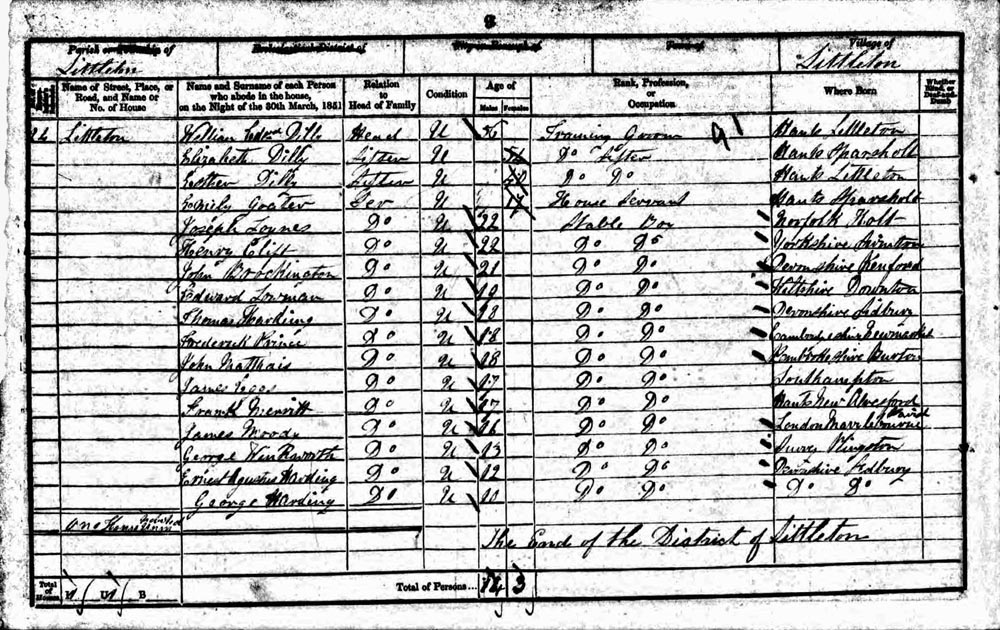 8
Parish or Township of Ecclesiastical District of City or Borough of Town of Village of
Littleton Littleton
Name of Street, Place, or Road, and Name or No. of House Name and Surname of each Person who abode in the house, on the Night of the 30th March, 1851 Relation to Head of Family Condition Age of Males Females Rank, Profession, or Occupation Where Born Whether Blind, or Deaf-and-Dumb
24 Littleton William Dilly Head U Training Groom 91 Hants Littleton
Elizabeth Dilly Sister U Do Sister Hants Sparsholt
Esther Dilly Sister U Do Do Hants Littleton
Emily Goater Ser U 17 House Servant Hants Sparsholt
Joseph Loynes Do U 22 Stable Boy Norfolk Holt
Henry Clift Do U 22 Do Do Yorkshire
John Brockington Do U 21 Do Do Devonshire
Edward Lowman Do U 19 Do Do Wiltshire Downton
Thomas Harding Do U 18 Do Do Devonshire Sidbury
Frederick Prince Do U 18 Do Do Cambridgeshire Newmarket
John Matthais Do U 18 Do Do Pembrokeshire Burton
James Do U 17 Do Do Southampton
Frank Merritt Do U 17 Do Do Hants New Alresford
James Moody Do U 16 Do Do London Marylebourne
George Winkworth Do U 13 Do Do Surrey Kingston
Ernest Harding Do U 12 Do Do Devonshire Sidbury
George Harding Do U 10 Do Do Do Do
One House
The End of the District of Littleton
Total of Houses I U B Total of Persons... 14 3